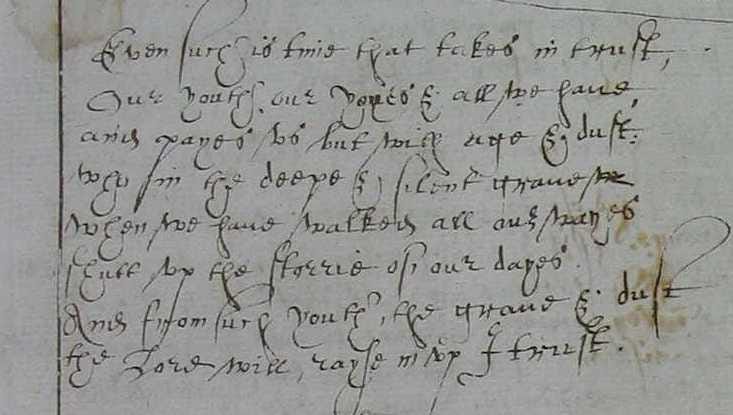 Even such is time that takes in trust,
Our youth, our yoyes & all we have,
and payes us but with age & dust.
who in the deepe & silent grave
when we have walked all our wayes
shutt up the storrie of our dayes.
And from such youth, the grave & dust
the Lord will rayse m up I trust.